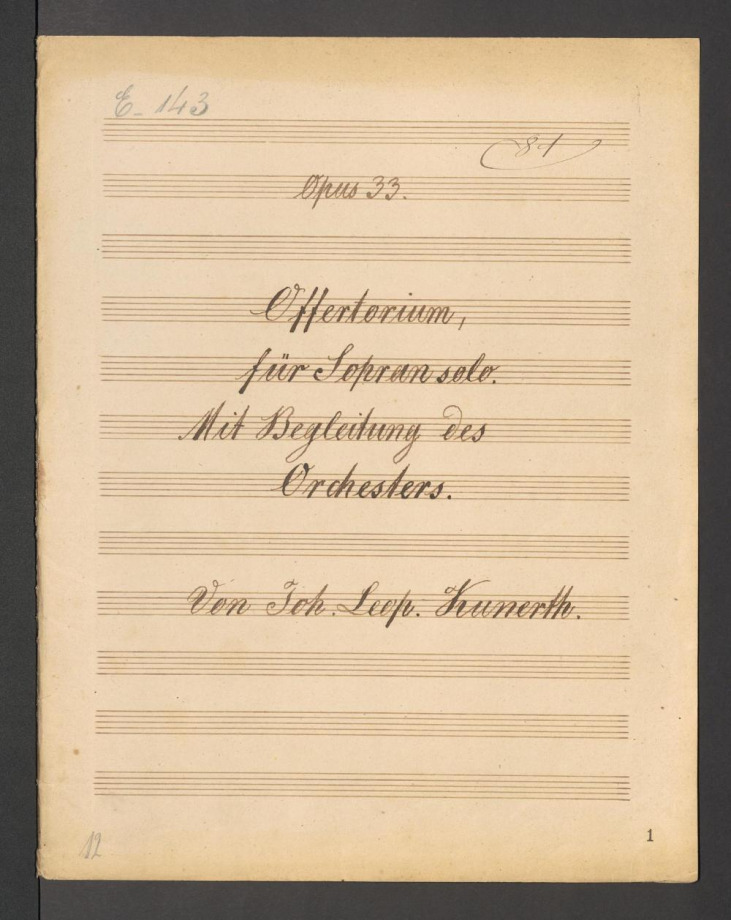 E-143
81
Opus 33.
Offertorium,
für Sopran solo.
Mit Begleitung des
Orchesters.
Von Joh. Leop. Kunerth.
12
1